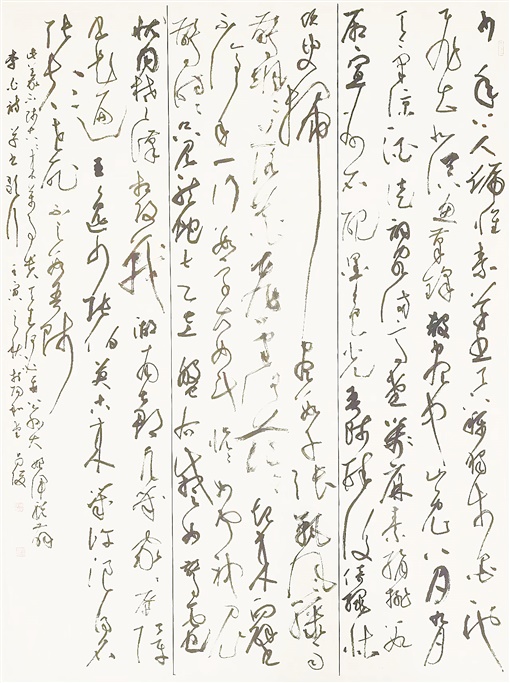 少年上人號懷素草書天下稱獨步墨池
飛出北溟魚筆鋒殺盡中山兔八月九月
天氣涼酒徒詞客滿高堂箋麻素絹排數
厢宣州石硯墨色光吾師醉後倚繩床
須臾掃盡數千張飄風驟雨
驚颯颯落花飛雪何茫茫起來向壁
不停手一行數字大如斗怳怳如聞神鬼
驚時時只見龍蛇走左盤右蹙如驚電
狀同楚漢相攻戰湖南七郡凡幾家家家屏障
書題遍王逸少張伯英古來幾許浪得名
張顛老死不足數吾師
此義不師古古來萬事貴天生何必要公孫大娘渾脫舞
李白詩草書歌行壬寅之秋於